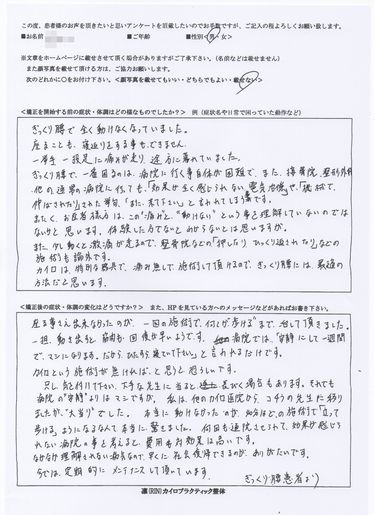 この度、患者様のお声を頂きたいと思いアンケートを頂戴したいのでお手数ですが、ご記入の程よろしくお願い致します。
■お名前 ■ご年齢 ■性別＜男・女＞
※文章をホームページに載せさせて頂く場合がありますがご了承下さい。(名前などは載せません)
また顔写真を載せて頂ける方は、ご協力お願いします。
次のどれかに○をお付け下さい。＜顔写真を載せてもいい・どちらでもよい・載せない＞
<矯正を開始する前の症状・体調はどの様なものでしたか？> 例（症状名や日常で困っていた動作など）
ぎっくり腰で全く動けなくなっていました。
座ることも、寝返りをする事もできません。
一挙手一投足に痛みが走り、途方に暮れていました。
ぎっくり腰で、一番困るのは、病院に行く事自体が困難で、また、接骨院、整形外科
他の通常の病院に行っても、「効果が全く感じられない電気治療」や、「機械で
伸ばされたり」された挙句、「また、来て下さい」と言われてしまう事です。
またく、お医者様方は、この"痛み"と"動けない"という事を理解していないのでは
ないかと思います。体験した方でないとわからないとは思いますが。
また、少し動くと激痛が走るので、整骨院などの「押したり ひっくり返されたり」などの
施術も論外です。
カイロは、特別な器具で、痛み無しで施術して頂けるので、ぎっくり腰には、最適の
方法だと思います。
<矯正後の症状・体調の変化はどうですか？> また、HPを見ている方へのメッセージなどがあればお書き下さい。
座る事さえ出来なかったのが、一回の施術で、何とか歩けるまで、治して頂きました。
一担、動き出すと、筋肉も回復が早いようです。他の病院では、「安静にして一週間
で、マシになります。だから、ひたすら寝ていて下さい」と言われるだけです。
カイロという施術が無ければ、と思うと恐ろしいです。
只し、気を付け下さい、下手な先生に当ると長びく場合もあります。それでも
病院の"安静"よりはマシでもが、私は、他のカイロ医院から、コチラの先生に移り
ましたが、"大当り"でした。本当に動けなかったのが、30分ほどの施術で「立って
歩ける」ようになるなんて本当に、驚きました。何回も通院させられて、効果が感じら
れない病院の事を考えると、費用対効果は高いです。
なかなか理解されない病気なので、早くに社会復帰できるのが、ありがたいです。
今では、定期的にメンテナンスして頂いています。
ぎっくり腰患者より
凛(RIN)カイロプラクティック整体